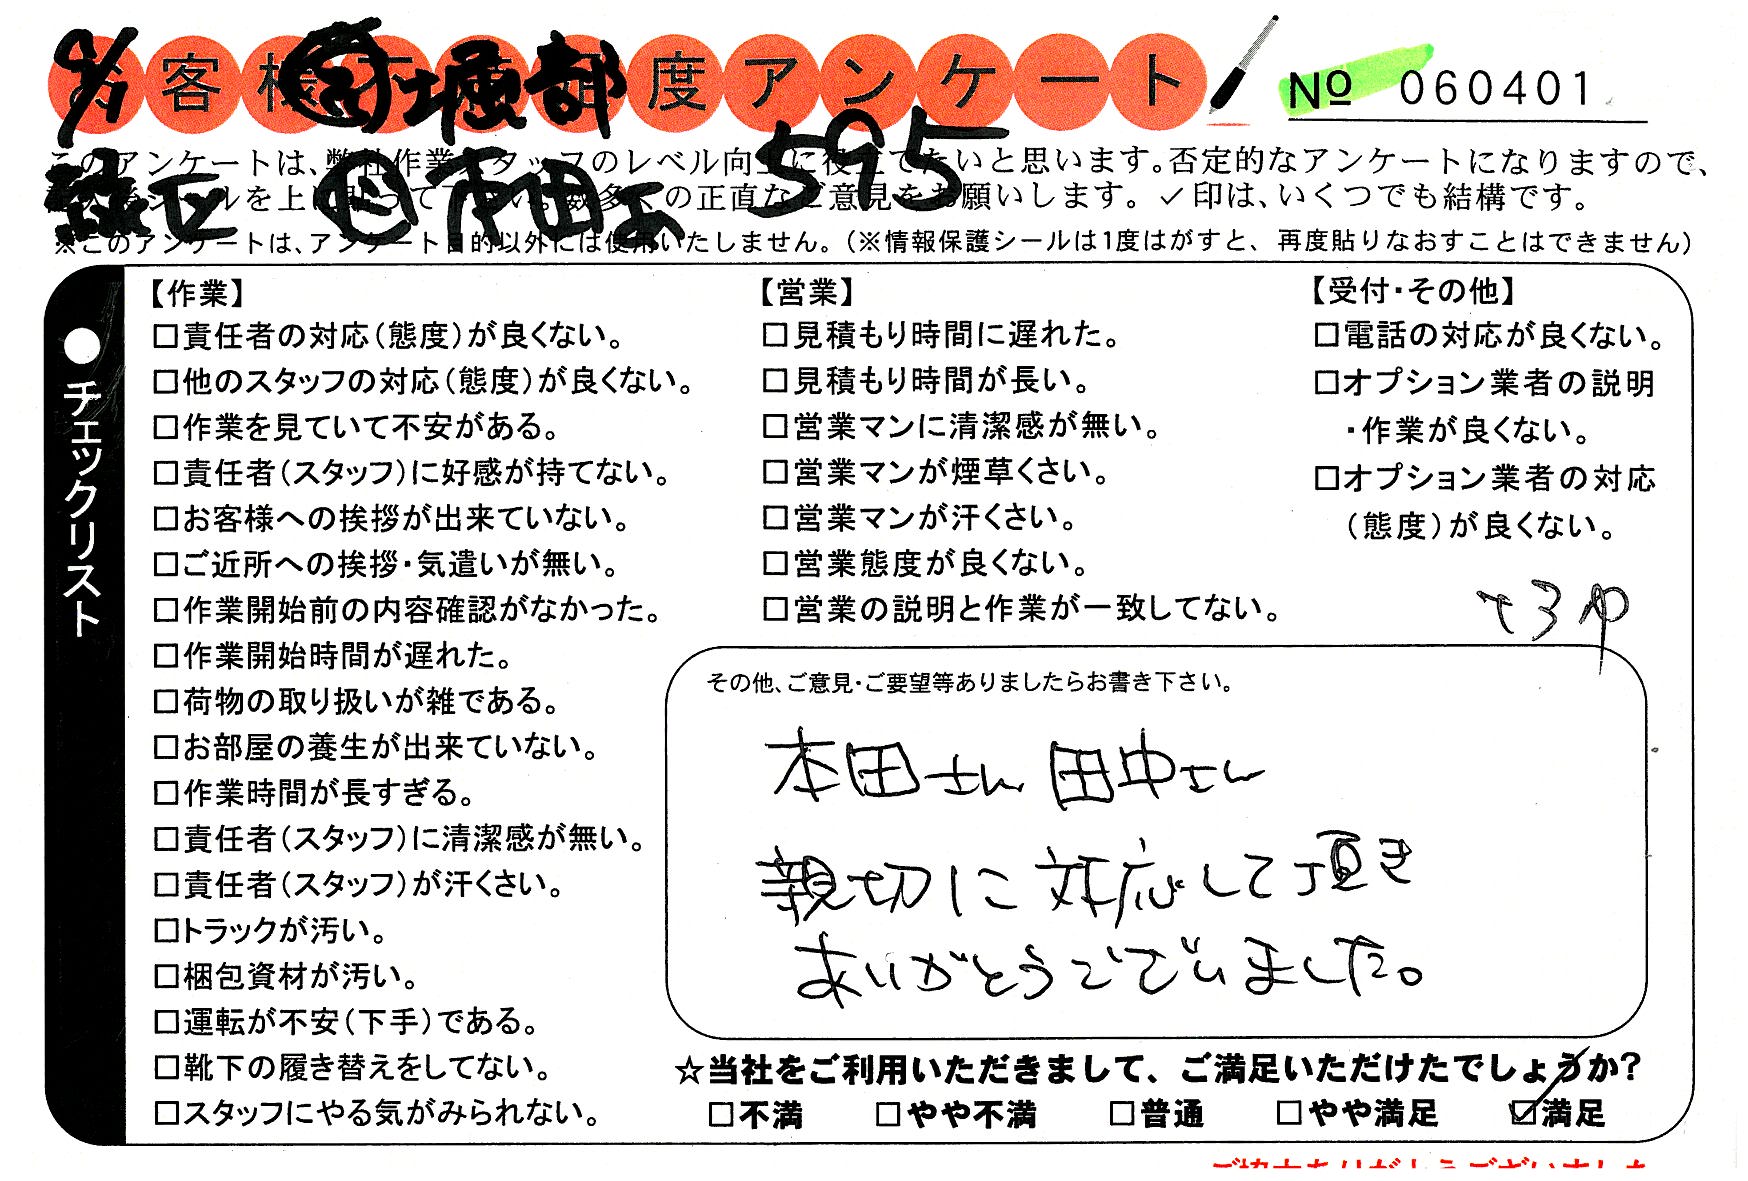 9/1 堀部
お客様不満度アンケート
№ 060401
足立 本田 595
このアンケートは、弊社作業スタッフのレベル向上に役立てたいと思います。否定的なアンケートになりますので、
シールを上に貼って下さい。数多くの正直なご意見をお願いします。✓印は、いくつでも結構です。
※このアンケートは、アンケート目的以外には使用いたしません。(※情報保護シールは1度はがすと、再度貼りなおすことはできません)
●チェックリスト
【作業】
□責任者の対応(態度)が良くない。
□他のスタッフの対応(態度)が良くない。
□作業を見ていて不安がある。
□責任者(スタッフ)に好感が持てない。
□お客様への挨拶が出来ていない。
□ご近所への挨拶・気遣いが無い。
□作業開始前の内容確認がなかった。
□作業開始時間が遅れた。
□荷物の取り扱いが雑である。
□お部屋の養生が出来ていない。
□作業時間が長すぎる。
□責任者(スタッフ)に清潔感が無い。
□責任者(スタッフ)が汗くさい。
□トラックが汚い。
□梱包資材が汚い。
□運転が不安(下手)である。
□靴下の履き替えをしてない。
□スタッフにやる気がみられない。
【営業】
□見積もり時間に遅れた。
□見積もり時間が長い。
□営業マンに清潔感が無い。
□営業マンが煙草くさい。
□営業マンが汗くさい。
□営業態度が良くない。
□営業の説明と作業が一致してない。
【受付・その他】
□電話の対応が良くない。
□オプション業者の説明
・作業が良くない。
□オプション業者の対応
(態度)が良くない。
その他、ご意見・ご要望等ありましたらお書き下さい。
本田さん 田中さん
親切に対応して頂き
ありがとうございました。
☆当社をご利用いただきまして、ご満足いただけたでしょうか?
□不満 □やや不満 □普通 □やや満足 ☑満足
ご協力ありがとうございました